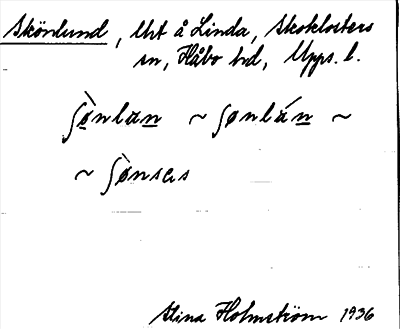 Skönlund, Uht å Linda, Skoklosters
sn, Håbo hd, Upps. l.
ʃø̀nlan ~ ʃønlán ~
~ ʃø̀nsas
Stina Holmström 1936